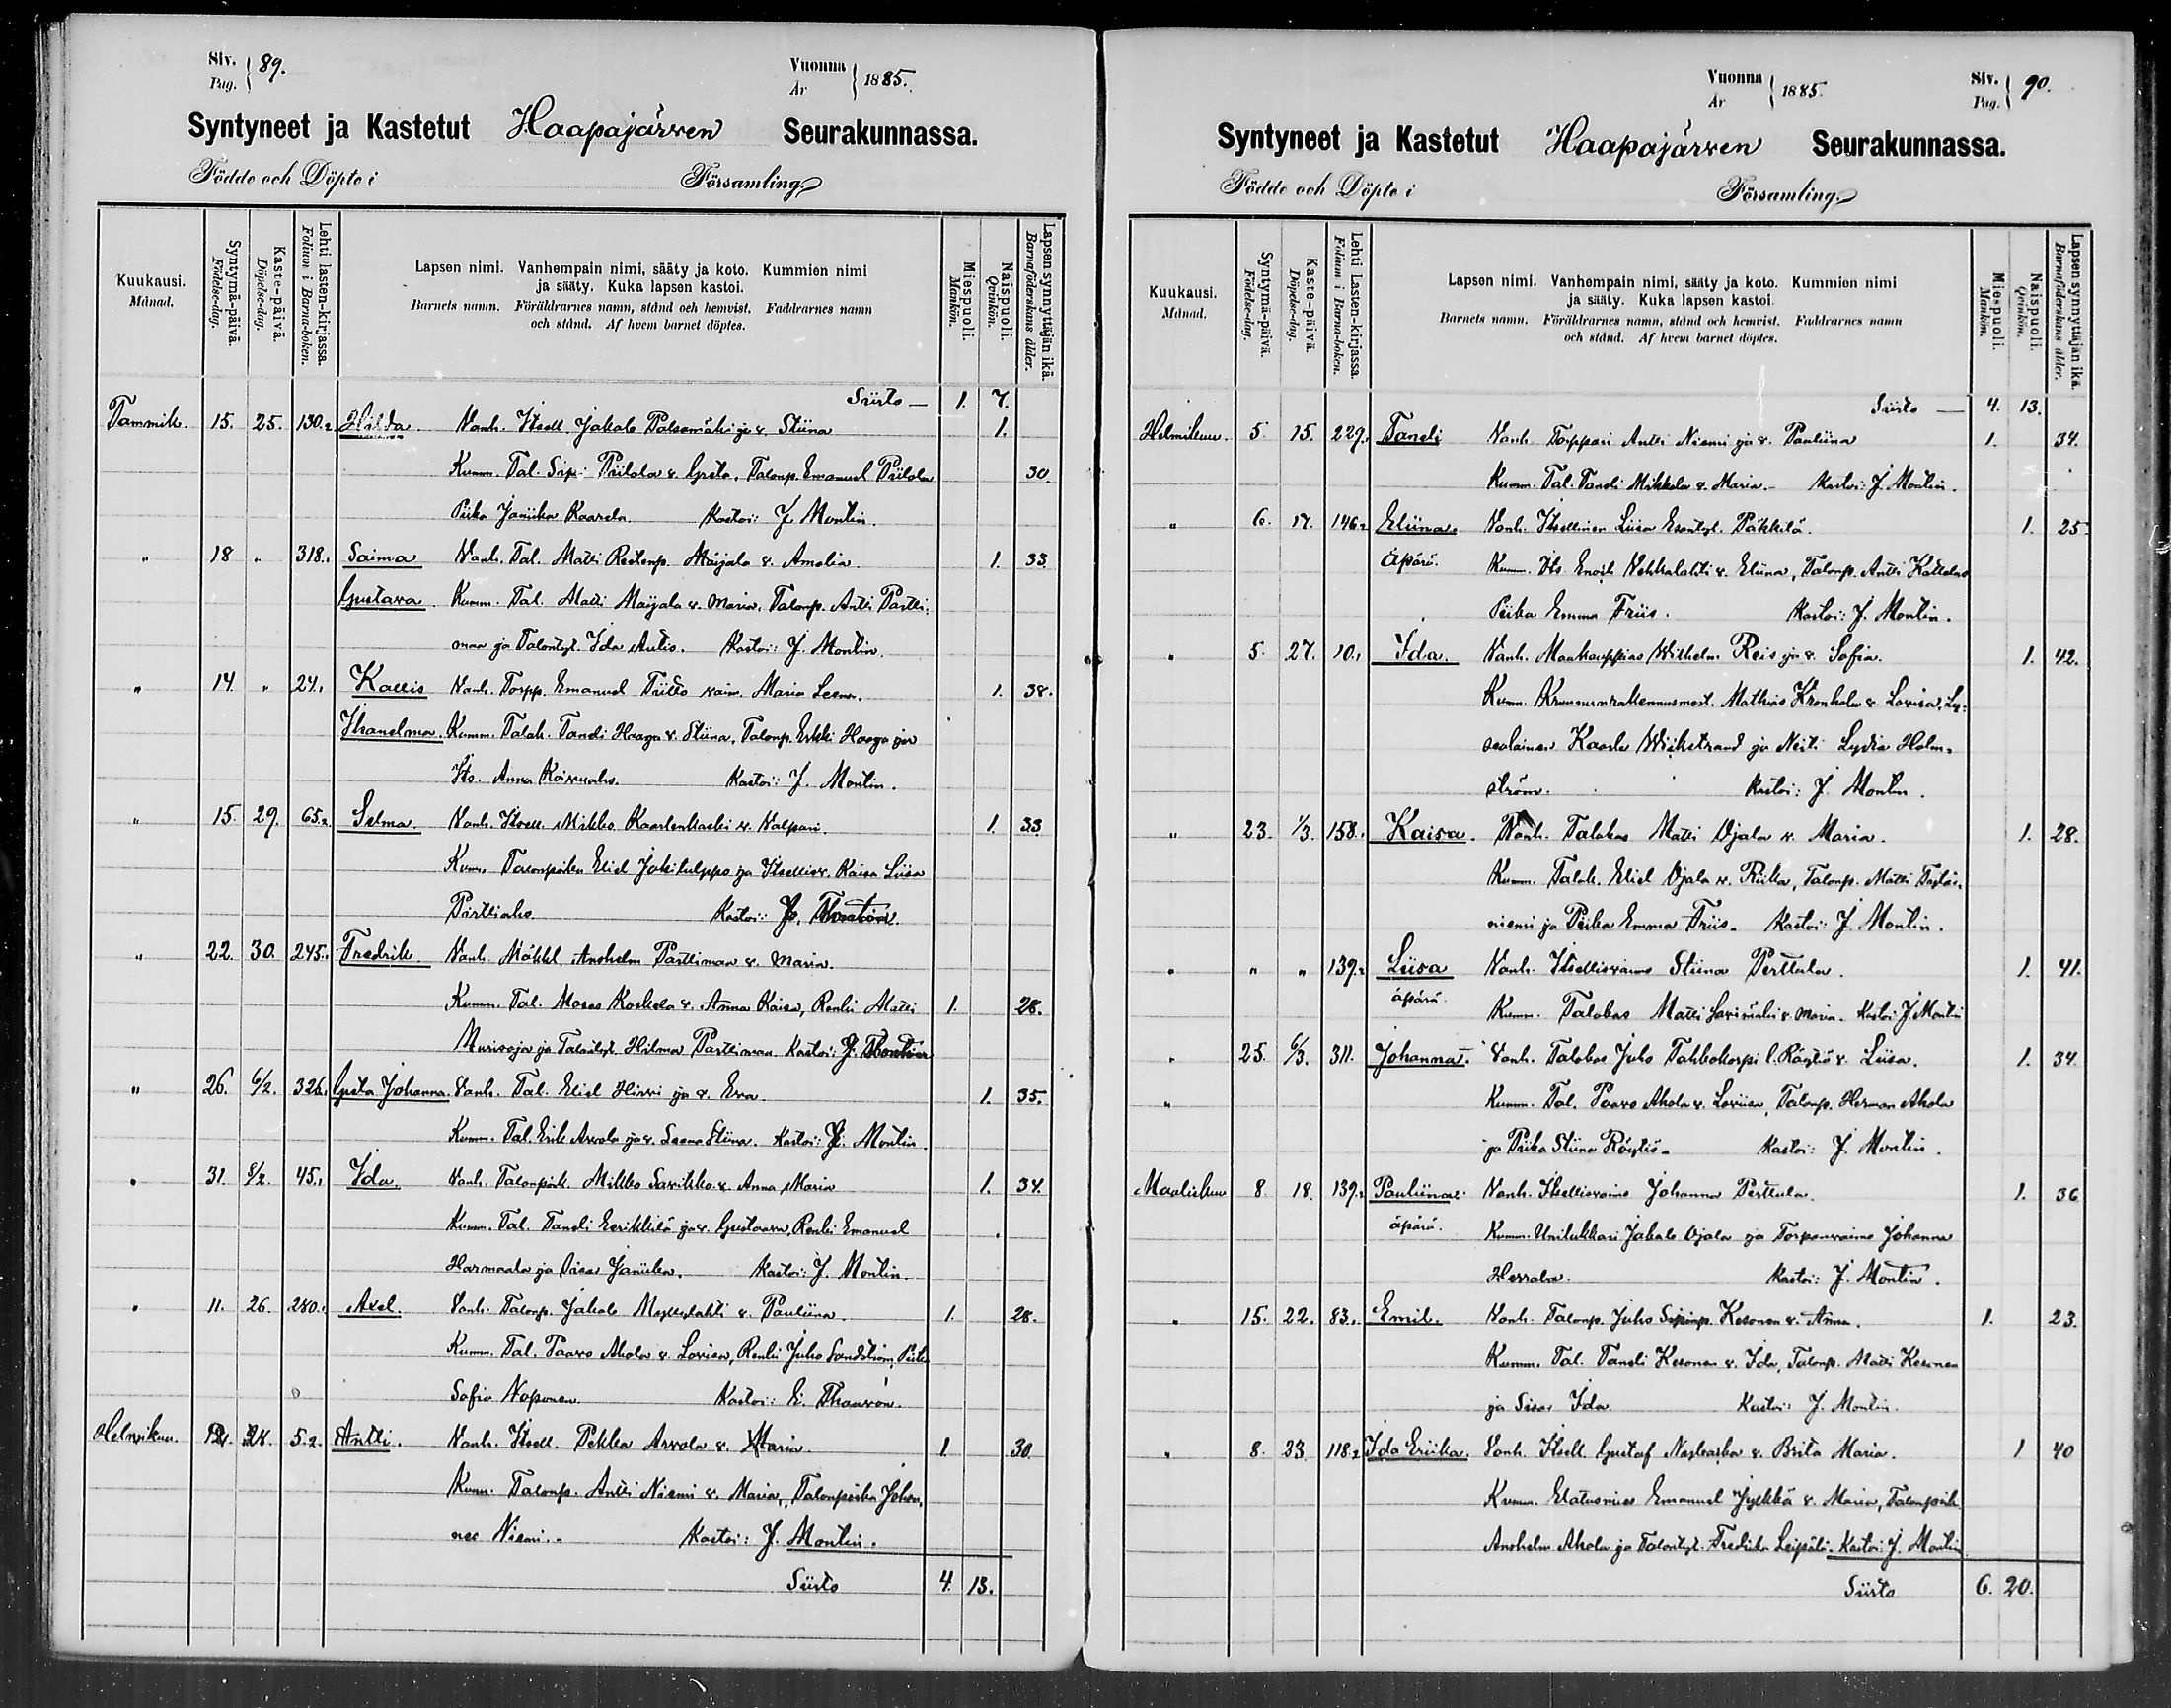 Siv. Pag. 89.
Vuonna År 1885.
Syntyneet ja Kastetut Haapajärven Seurakunnassa.
Födde och Döpte i Församling.
Kuukausi. Månad.
Syntymä-päivä. Födelse-dag.
Kaste-päivä. Döpelse-dag.
Lehti lasten-kirjassa. Folium i Barna-boken.
Lapsen nimi. Vanhempain nimi, sääty ja koto. Kummien nimi
ja sääty. Kuka lapsen kastoi.
Barnets namn. Föräldrarnes namn, stånd och hemvist. Faddrarnes namn
och stånd. Af hvem barnet döptes.
Miespuoli. Mankön.
Naispuoli. Qvinkön.
Lapsen synnyttäjän ikä. Barnaföderskans ålder.
Siirto — 1. 7.
Tammik. 15. 25. 130.2 Hilda. Vanh. Itsell. Jakob Palsamäki ja v. Stiina 1.
Kumm. Tal. Sip. Piilola v. Greta, Talonp. Emanuel Piilola 30.
Piika Janika Kaarela. Kastoi: J. Montin.
" 18 " 318.1 Saima Vanh. Tal. Matti Maijala v. Amalia. 1. 33.
Gustava Kumm. Tal. Matti Maijala v. Maria, Talonp. Antti Partti-
maa ja Talontyt. Ida Autio. Kastoi: J. Montin.
" 14 " 24.1 Kallis Vanh. Torpp. Emanuel Tiitto vaim. Maria Leena. 1. 38.
Ihanelma. Kumm. Talok. Taneli Haaga v. Stiina, Talonp. Erkki Haaga ja
Its. Anna Koivuaho. Kastoi: J. Montin.
" 15. 29. 65.2 Selma. Vanh. Itsell. Mikko Kaarlenkaski v. Valpuri. 1. 33
Kumm. Talonpoika Eliel Jokitulppo ja Itsellisv. Kaisa Liisa
Parttiaho. Kastoi:
" 22. 30. 245. Fredrik Vanh. Mäkkl. Anshelm Parttimaa v. Maria.
Kumm. Tal. Moses Koskela v. Anna Kaisa, Renki Matti 1. 28.
Murisoja ja Talontyt. Hilma Parttimaa Kastoi:
" 26. 6/2. 326.1 Greta Johanna. Vanh. Tal. Eliel Hirvi ja v. Eva 1. 35.
Kumm. Tal. Erik Arvola ja v. Leena Stiina. Kastoi: J. Montin.
" 31. 8/2. 45.1 Ida. Vanh. Talonpoik. Mikko Savikko v. Anna Maria 1. 34.
Kumm. Tal. Taneli Eerikkilä ja v. Gustaava, Renki Emanuel
Harmaala ja Sisar Janika. Kastoi: J. Montin.
" 11. 26. 280.1 Axel. Vanh. Talonp. Jakob Myllylahti v. Pauliina. 1. 28.
Kumm. Tal. Paavo Ahola v. Lovisa, Renki Juho Sandström, Piika
Sofia Naponen. Kastoi: E. Thauvón.
Helmikuu. 5.2. Antti. Vanh. Itsell. Pekka Arvola v. Maria. 1. 30
Kumm. Talonp. Antti Niemi v. Maria, Talonpoika Johan-
nes Niemi. Kastoi: J. Montin.
Siirto 4. 13.
Vuonna År 1885.
Siv. Pag. 90.
Syntyneet ja Kastetut Haapajärven Seurakunnassa.
Födde och Döpte i Församling.
Kuukausi. Månad.
Syntymä-päivä. Födelse-dag.
Kaste-päivä. Döpelse-dag.
Lehti Lasten-kirjassa. Folium i Barna-boken.
Lapsen nimi. Vanhempain nimi, sääty ja koto. Kummien nimi
ja sääty. Kuka lapsen kastoi.
Barnets namn. Föräldrarnes namn, stånd och hemvist. Faddrarnes namn
och stånd. Af hvem barnet döptes.
Miespuoli. Mankön.
Naispuoli. Qvinkön.
Lapsen synnyttäjän ikä. Barnaföderskans ålder.
Siirto — 4. 13.
Helmikuu. 5. 15. 229.1 Taneli Vanh. Torppari Antti Niemi ja v. Pauliina 1. 34.
Kumm. Tal. Taneli Mikkola v. Maria. Kastoi: J. Montin.
" 6. 17. 146.2 Eliina. Vanh. Itsellinen Liisa Esantyt. Päkkilä. 1. 25
äpärä. Kumm. Its. Enoch Vehkalahti v. Eliina, Talonp. Antti
Piika Emma Friis. Kastoi: J. Montin.
" 5. 27. 10.1 Ida. Vanh. Maakauppias Wilhelm Reis ja v. Sofia. 1. 42.
Kumm. Kruununrakennusmest. Mathias Kronholm v. Lovisa, Ly-
sealainen Kaarlo Wickstrand ja Neiti Lydia Holm-
ström. Kastoi: J. Montin.
" 23. 1/3. 158.1 Kaisa. Vanh. Talokas Matti Ojala v. Maria. 1. 28.
Kumm. Talok. Eliel Ojala v. Riika, Talonp. Matti
niemi ja Piika Emma Friis. Kastoi: J. Montin.
" " " 139.2 Liisa Vanh. Itsellisvaimo Stiina Perttula. 1. 41.
äpärä. Kumm. Talokas Matti Savimäki v. Maria. Kastoi J. Montin
" 25. 6/3. 311. Johanna. Vanh. Talokas Juho Takkokorpi l. Räytiö v. Liisa. 1. 34.
" Kumm. Tal. Paavo Ahola v. Loviisa, Talonp. Herman Ahola
ja Piika Stiina Röytiö. Kastoi: J. Montin.
Maaliskuu 8. 18. 139.2 Pauliina. Vanh. Itsellisvaimo Johanna Perttula. 1. 36
äpärä. Kumm. Unilukkari Jakob Ojala ja Torpanvaimo Johanna
Herrala. Kastoi: J. Montin.
" 15. 22. 83.1 Emil. Vanh. Talonp. Juho Kesonen v. Anna. 1. 23.
Kumm. Tal. Taneli Kesonen v. Ida, Talonp. Matti Kesonen
ja Sisar Ida. Kastoi: J. Montin.
" 8. 23. 118.2 Ida Eriika. Vanh. Itsell. Gustaf v. Brita Maria. 1 40
Kumm. Elatusmies Emanuel Jylkkä v. Maria, Talonpoik.
Anshelm Ahola ja Talontyt. Fredrika Leipälä. Kastoi J. Montin
Siirto 6. 20.